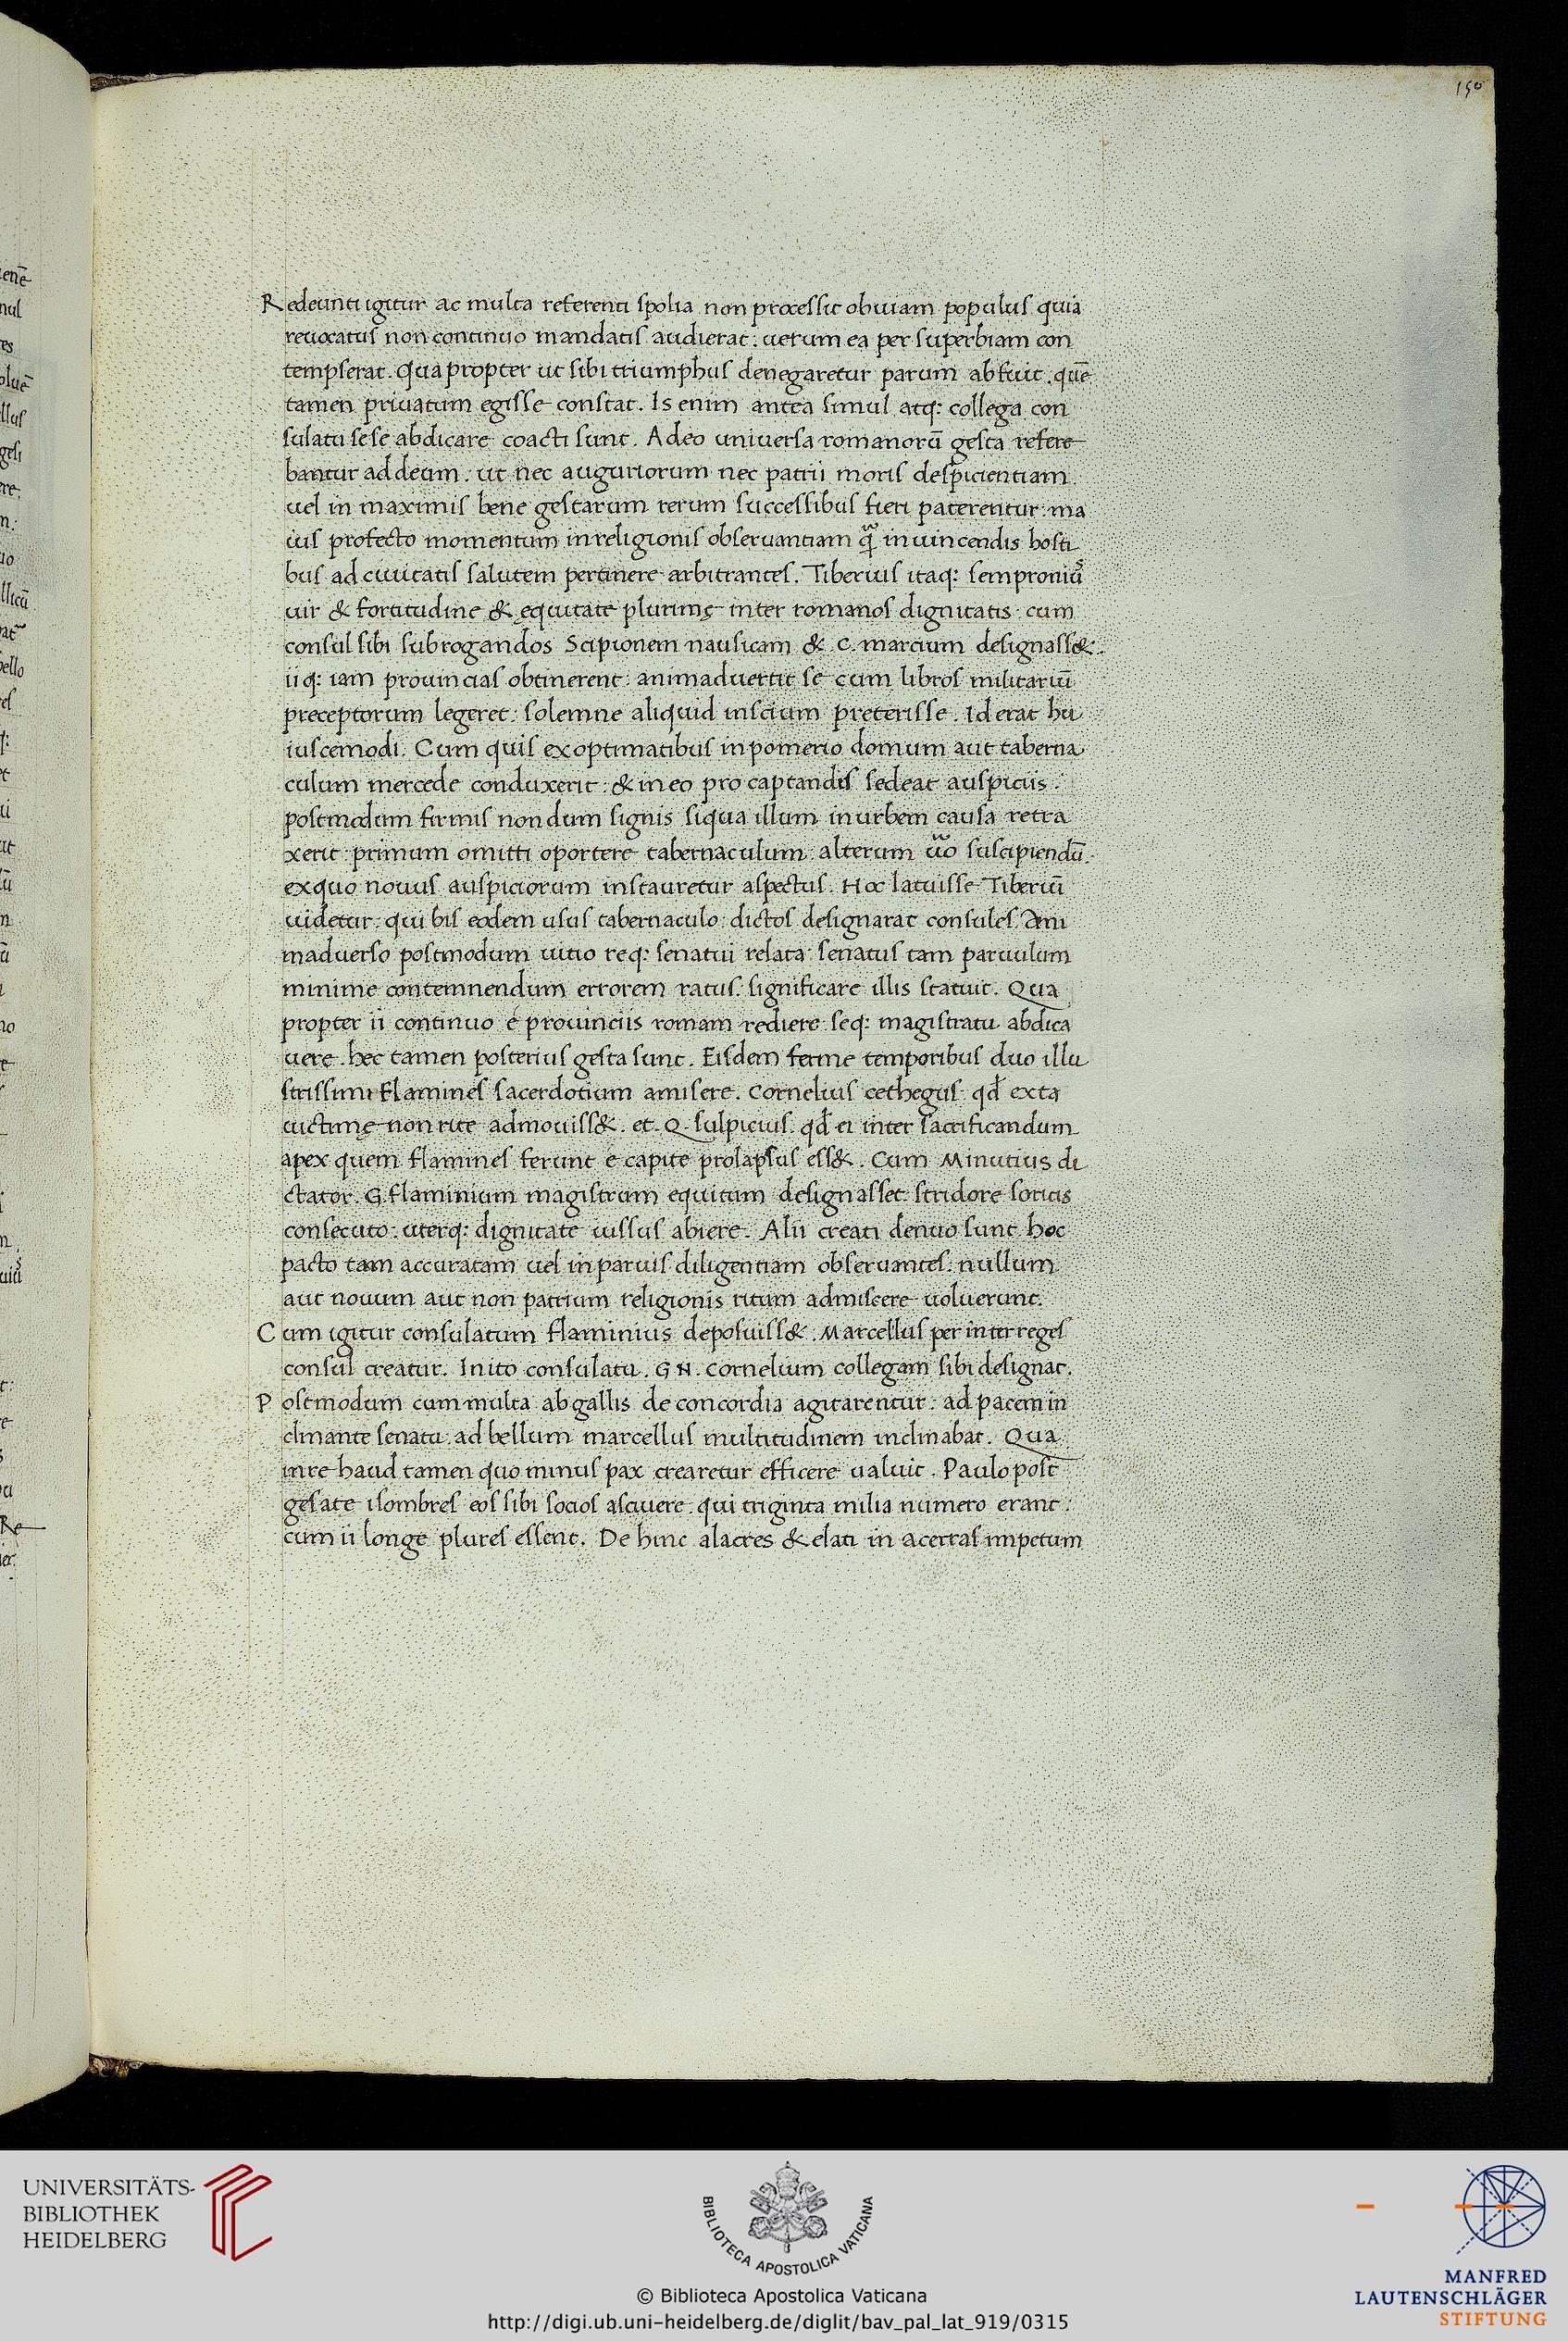 150
Redeunti igitur ac multa referenti spolia non processit obuiam populus quia
reuocatus non continuo mandatis audierat: uerum ea per superbiam con
tempserat. Quapropter ut sibi triumphus denegaretur parum abfuit. quē
tamen priuatum egisse constat. Is enim antea simul atq: collega con
sulatu sese abdicare coacti sunt. Adeo uniuersa romanorū gesta refere
bantur ad deum: ut nec auguriorum nec patrii moris despicientiam
uel in maximis bene gestarum rerum successibus fieri paterentur: ma
ius profecto momentum in religionis obseruantiam q̃ in uincendis hosti
bus ad ciuitatis salutem pertinere arbitrantes. Tiberius itaq: semproniu᷒
uir & fortitudine & ęquitate plurimę inter romanos dignitatis cum
consul sibi subrogandos Scipionem nausicam & C. marcium designass&.
iiq: iam prouincias obtinerent: animaduertit se cum libros militariū
preceptorum legeret: solemne aliquid inscium preterisse. Id erat hu
iuscemodi. Cum quis ex optimatibus in pomerio domum aut taberna
culum mercede conduxerit: & in eo pro captandis sedeat auspiciis:
postmodum firmis nondum signis siqua illum in urbem causa retra
xerit: primum omitti oportere tabernaculum: alterum uͦo suscipiendū.
ex quo nouus auspiciorum instauretur aspectus. Hoc latuisse Tiberiū
uidetur: qui bis eodem usus tabernaculo: dictos designarat consules. Ani
maduerso postmodum uitio req: senatui relata: senatus tam paruulum
minime contemnendum errorem ratus: significare illis statuit. Qua
propter ii continuo e prouinciis romam rediere seq: magistratu abdica
uere. hec tamen posterius gesta sunt. Eisdem ferme temporibus duo illu
strissimi Flamines sacerdotium amisere. Cornelius cethegus: qđ exta
uictimę non rite admouiss&. et. Q. sulpicius. qđ ei inter sacrificandum
apex quem flamines ferunt e capite prolapsus ess&. Cum Minutius di
ctator. G. flaminium magistrum equitum designasset: stridore soricis
consecuto: uterq: dignitate iussus abiere. Alii creati denuo sunt. hoc
pacto tam accuratam uel in paruis diligentiam obseruantes: nullum
aut nouum aut non patrium religionis ritum admiscere uoluerunt.
Cum igitur consulatum flaminius deposuiss&. Marcellus per interreges
consul creatur. Inito consulatu. GN. Cornelium collegam sibi designat.
Postmodum cum multa ab gallis de concordia agitarentur: ad pacem in
clinante senatu: ad bellum marcellus multitudinem inclinabat. Qua
in re haud tamen quo minus pax crearetur efficere ualuit. Paulo post
gesate isombres eos sibi socios asciuere. qui triginta milia numero erant:
cum ii longe plures essent. De hinc alacres & elati in acerras impetum
UNIVERSITÄTS-
BIBLIOTHEK
HEIDELBERG
BIBLIOTECA APOSTOLICA VATICANA
© Biblioteca Apostolica Vaticana
http://digi.ub.uni-heidelberg.de/diglit/bav_pal_lat_919/0315
MANFRED
LAUTENSCHLÄGER
STIFTUNG